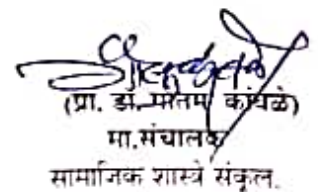 (प्रा. डॉ. गौतम कांबळे)
मा.संचालक
सामाजिक शास्त्रे संकुल.